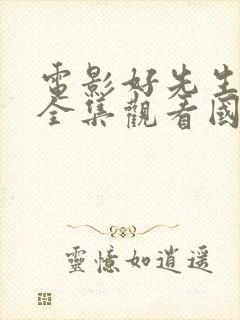 電影好先生
全集觀看國
靈憶如逍遥